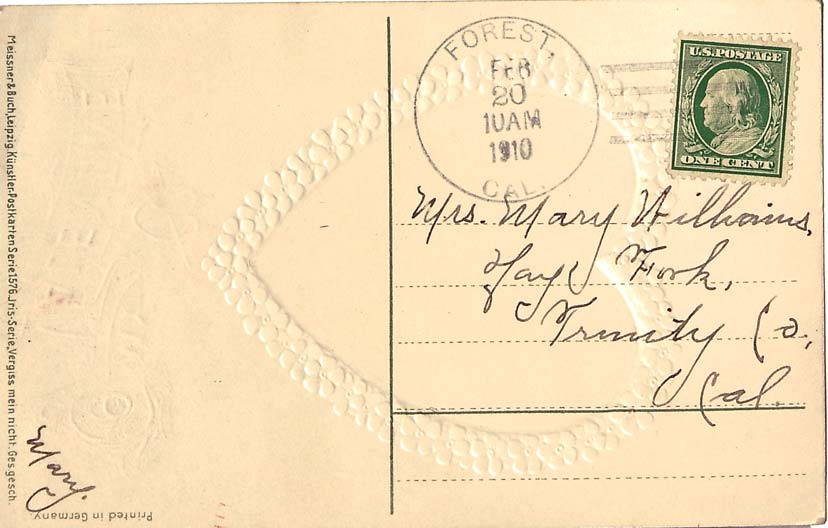 Meissner & Buch, Leipzig. Künstler-Postkarten Serie 1576. Jris-Serie, Vergiss mein nicht. Ges. gesch.
Mary.
Printed in Germany.
FOREST,
FEB
20
10AM
1910
CAL.
U.S. POSTAGE
ONE CENT
Mrs. Mary Williams,
Fork,
Trinity Co,
Cal.